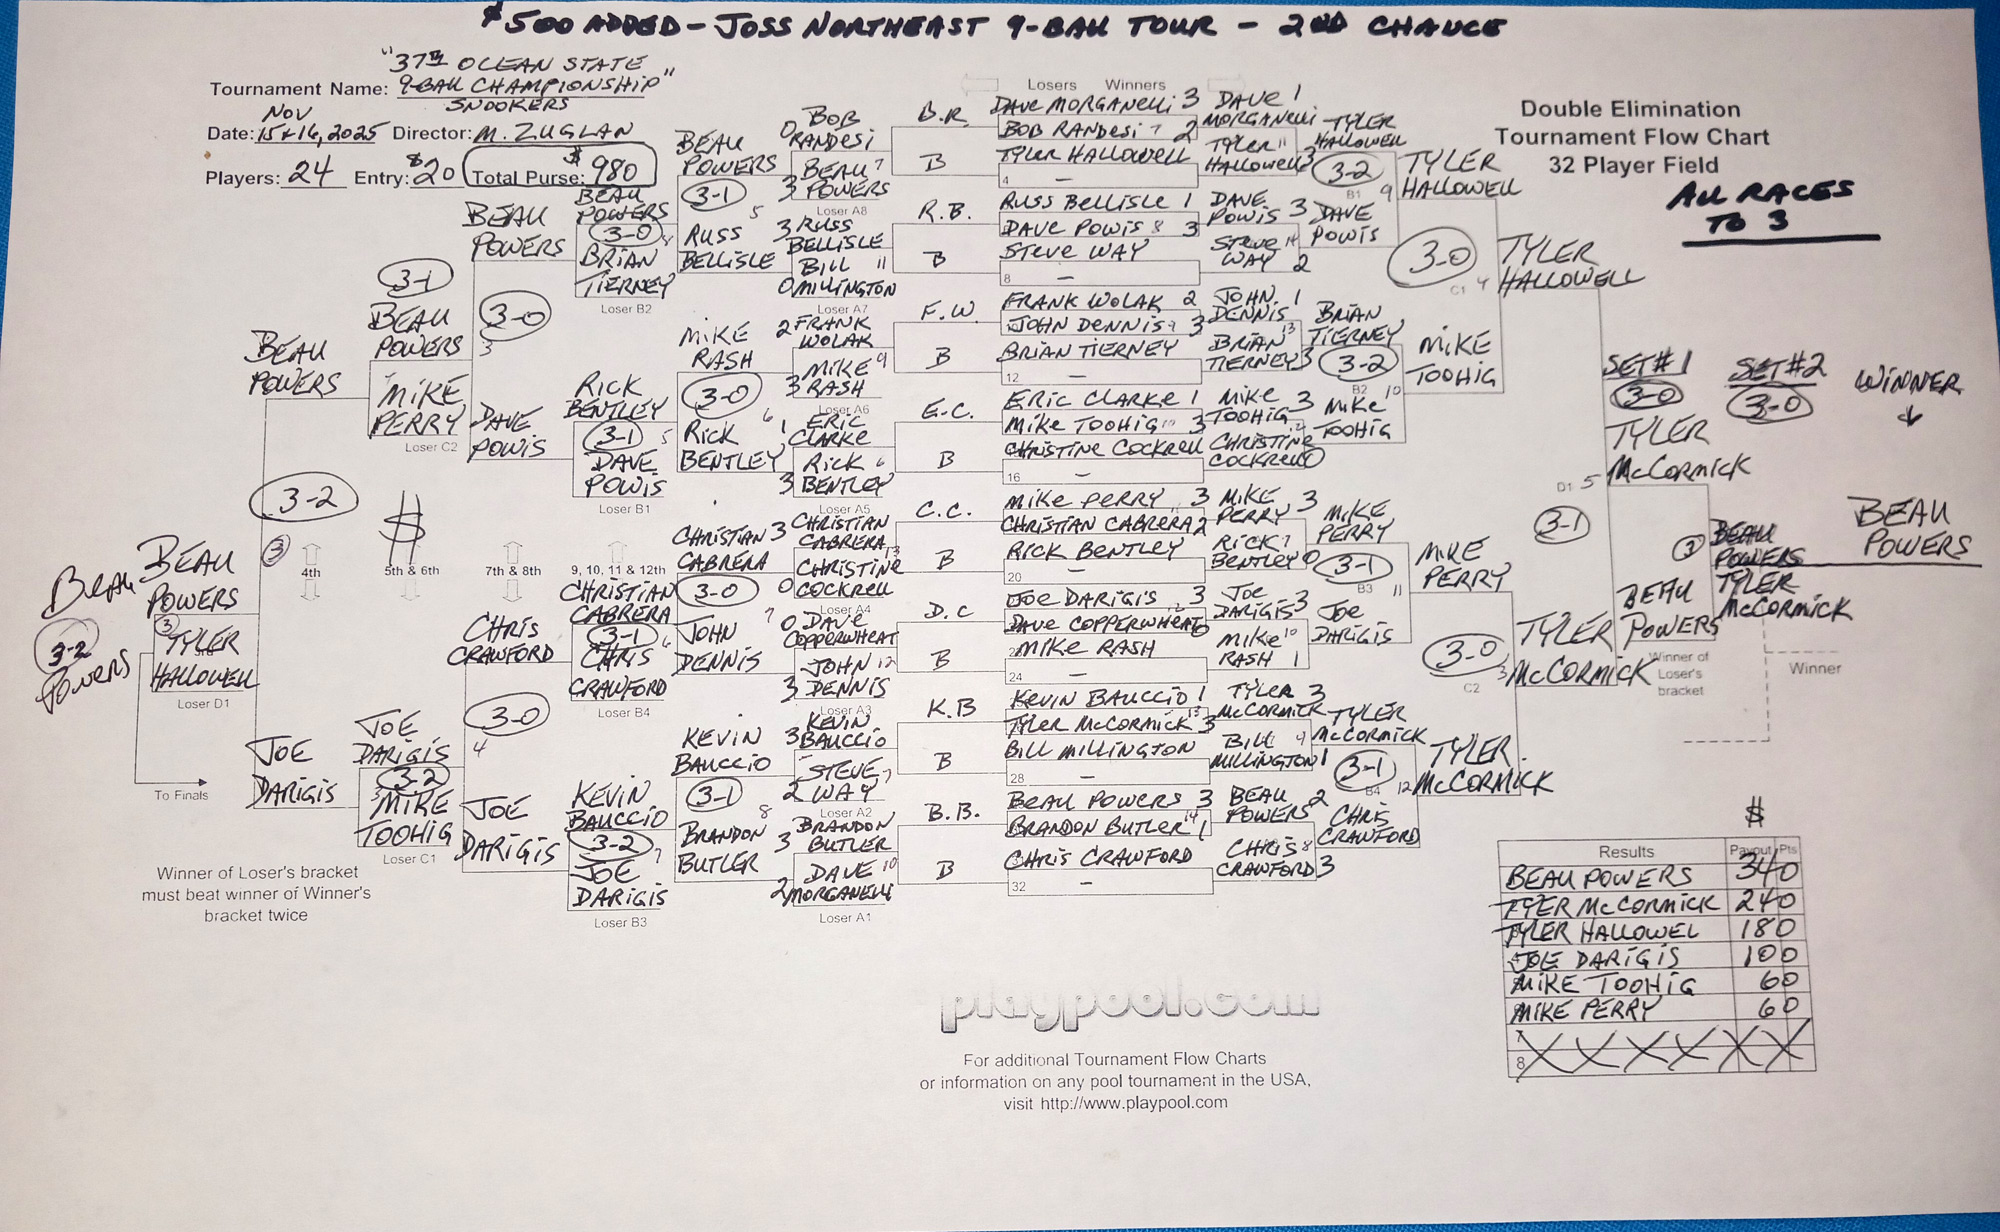 $500 ADDED - JOSS NORTHEAST 9-BALL TOUR - 2ND CHANCE
"37TH OCEAN STATE
Tournament Name: 9-BALL CHAMPIONSHIP"
SNOOKERS
NOV
Date: 15 & 16, 2025 Director: M. ZUGLAN
Players: 24 Entry: $20 Total Purse: $980
Double Elimination
Tournament Flow Chart
32 Player Field
ALL RACES
TO 3
Losers Winners
B.R.
DAVE MORGANELLI 3
BOB RANDESI 2
B
TYLER HALLOWELL
4 —
R.B.
RUSS BELLISLE 1
DAVE POWIS 8 3
B
STEVE WAY
8 —
F.W.
FRANK WOLAK 2
JOHN DENNIS 9 3
B
BRIAN TIERNEY
12 —
E.C.
ERIC CLARKE 1
MIKE TOOHIG 10 3
B
CHRISTINE COCKRELL
16 —
C.C.
MIKE PERRY 3
CHRISTIAN CABRERA 11 2
B
RICK BENTLEY
20 —
D.C
JOE DARIGIS 3
DAVE COPPERWHEAT 12 0
B
MIKE RASH
24 —
K.B
KEVIN BAUCCIO 1
TYLER McCORMICK 13 3
B
BILL MILLINGTON
28 —
B.B.
BEAU POWERS 3
BRANDON BUTLER 14 1
B
CHRIS CRAWFORD
32 —
DAVE 1
MORGANELLI
TYLER 11
HALLOWELL 3
DAVE
POWIS 3
STEVE 14
WAY 2
JOHN 1
DENNIS
BRIAN 13
TIERNEY 3
MIKE
TOOHIG 3
CHRISTINE 12
COCKRELL 0
MIKE 3
PERRY
RICK
BENTLEY 0
JOE
DARIGIS 3
MIKE 10
RASH 1
TYLER 3
McCORMICK
BILL 9
MILLINGTON 1
BEAU 2
POWERS
CHRIS 8
CRAWFORD 3
TYLER
HALLOWELL
3-2
B1 9
DAVE
POWIS
BRIAN
TIERNEY
3-2
B2 10
MIKE
TOOHIG
MIKE
PERRY
3-1
B3 11
JOE
DARIGIS
TYLER
McCORMICK
3-1
B4 12
CHRIS
CRAWFORD
TYLER
HALLOWELL
3-0
C1 4
MIKE
TOOHIG
MIKE
PERRY
3-0
C2 3
TYLER
McCORMICK
TYLER
HALLOWELL
D1 5
3-1
TYLER
McCORMICK
SET #1
3-0
SET #2
3-0
WINNER
TYLER
McCORMICK
BEAU
POWERS
Winner of
Loser's
bracket
3
BEAU
POWERS
TYLER
McCORMICK
BEAU
POWERS
Winner
0 BOB
RANDESI
BEAU 7
3 POWERS
Loser A8
3 RUSS
BELLISLE
BILL 11
0 MILLINGTON
Loser A7
2 FRANK
WOLAK
MIKE 9
3 RASH
Loser A6
1 ERIC
CLARKE
RICK 6
3 BENTLEY
Loser A5
CHRISTIAN
3 CABRERA
CHRISTINE 13
0 COCKRELL
Loser A4
0 DAVE
COPPERWHEAT
JOHN 12
3 DENNIS
Loser A3
KEVIN
3 BAUCCIO
STEVE 7
2 WAY
Loser A2
BRANDON
3 BUTLER
DAVE 10
2 MORGANELLI
Loser A1
BEAU
POWERS
3-1
5
RUSS
BELLISLE
MIKE
RASH
3-0
6
RICK
BENTLEY
CHRISTIAN
CABRERA
3-0
7
JOHN
DENNIS
KEVIN
BAUCCIO
3-1
8
BRANDON
BUTLER
BEAU
POWERS
3-0
BRIAN
TIERNEY
Loser B2
RICK
BENTLEY
3-1
5
DAVE
POWIS
Loser B1
9, 10, 11 & 12th
CHRISTIAN
CABRERA
3-1
6
CHRIS
CRAWFORD
Loser B4
KEVIN
BAUCCIO
3-2
7
JOE
DARIGIS
Loser B3
BEAU
POWERS
3-0
3
DAVE
POWIS
7th & 8th
CHRIS
CRAWFORD
3-0
4
JOE
DARIGIS
3-1
BEAU
POWERS
MIKE
PERRY
Loser C2
$
5th & 6th
JOE
DARIGIS
3-2
3
MIKE
TOOHIG
Loser C1
BEAU
POWERS
3-2
3
4th
JOE
DARIGIS
BEAU
POWERS
3
TYLER
HALLOWELL
Loser D1
BEAU
3-2
POWERS
To Finals
Winner of Loser's bracket
must beat winner of Winner's
bracket twice
$
Results Payout Pts
BEAU POWERS 340
TYER McCORMICK 240
TYLER HALLOWEL 180
JOE DARIGIS 100
MIKE TOOHIG 60
MIKE PERRY 60
7
8
playpool.com
For additional Tournament Flow Charts
or information on any pool tournament in the USA,
visit http://www.playpool.com